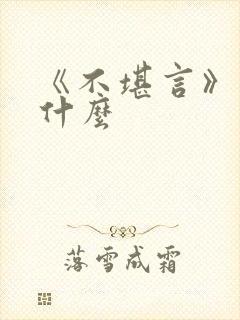 《不堪言》
什麼
落雪成霜